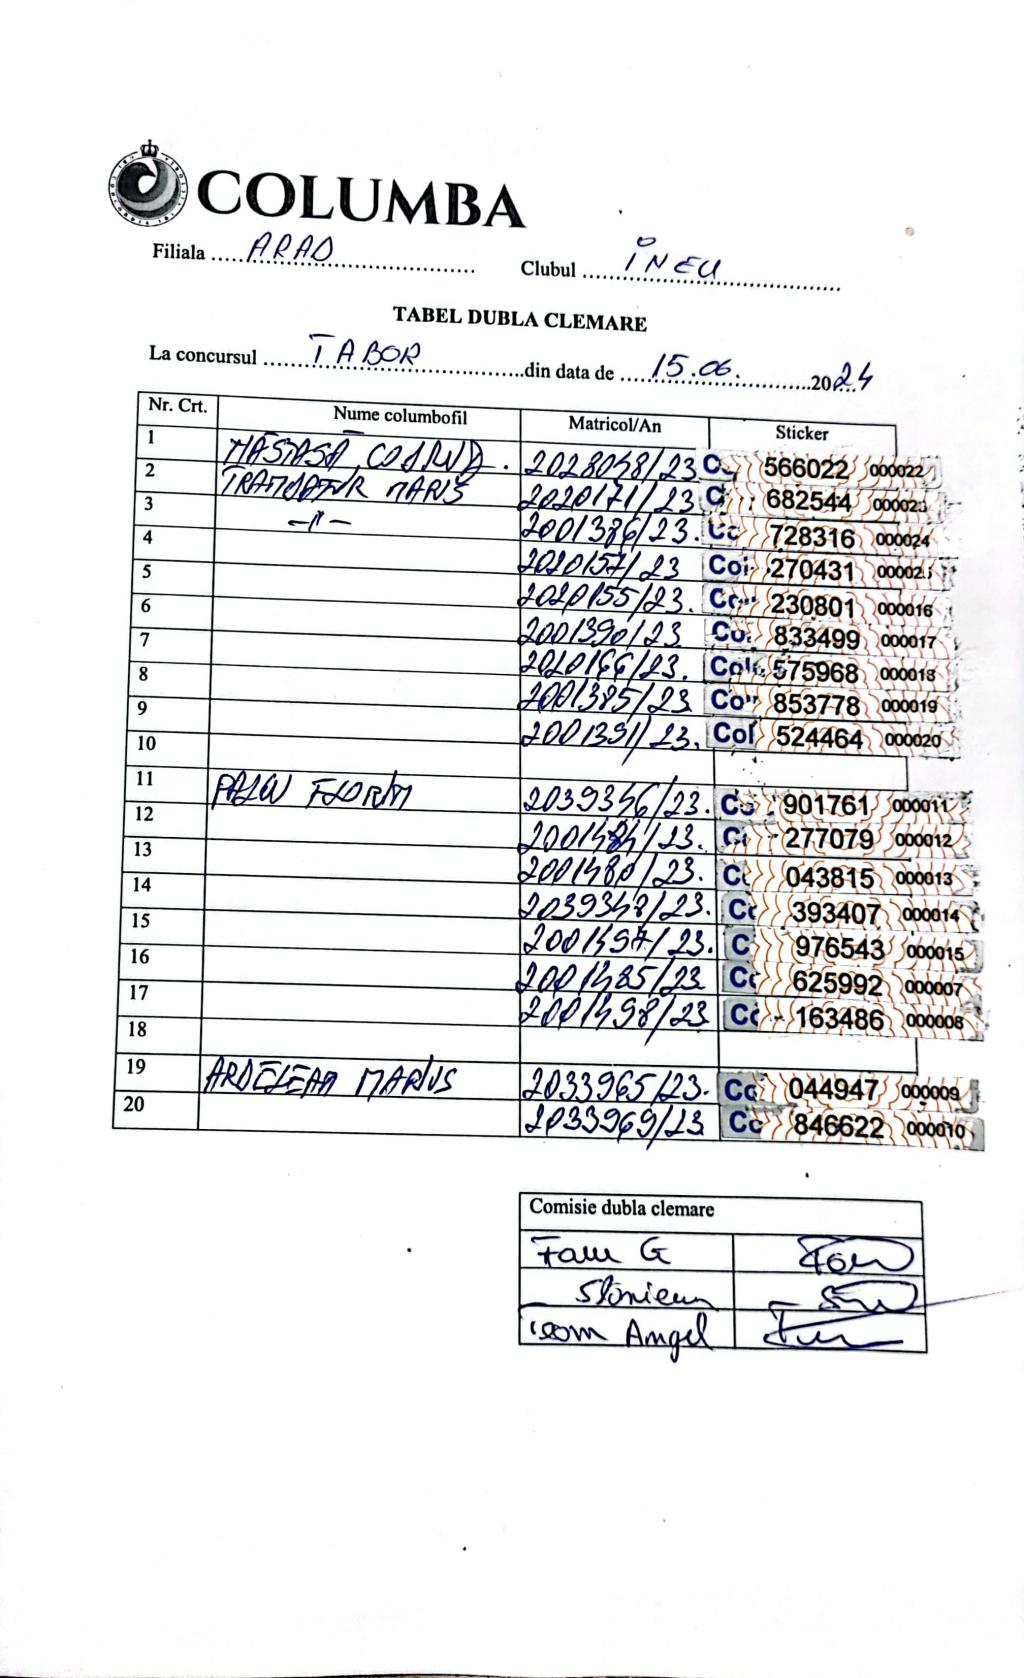 COLUMBA
Filiala ..... ARAD ..... Clubul ..... INEU .....
TABEL DUBLA CLEMARE
La concursul ..... TABOR ..... din data de ..... 15.06. ..... 2024
Nr. Crt. Nume columbofil Matricol/An Sticker
1 2028048/23 566022 000022
2 MARIUS 2020171/23 682544 000023
3 -//- 2001386/23. 728316 000024
4 2020157/23 270431
5 2020155/23. 230801 000016
6 2001390/23 833499 000017
7 2020166/23. 575968 000018
8 2001385/23 853778 000019
9 2001391/23. Col 524464 000020
10
11 FLORIN 2039346/23. 901761 000011
12 2001484/23. 277079 000012
13 2001480/23. 043815 000013
14 2039348/23. 393407 000014
15 2001497/23. 976543 000015
16 2001485/23 625992 000007
17 2001498/23 163486 000008
18
19 ARDELEAN MARIUS 2033965/23. 044947 000009
20 2033969/23 846622 000010
Comisie dubla clemare
G
Angel